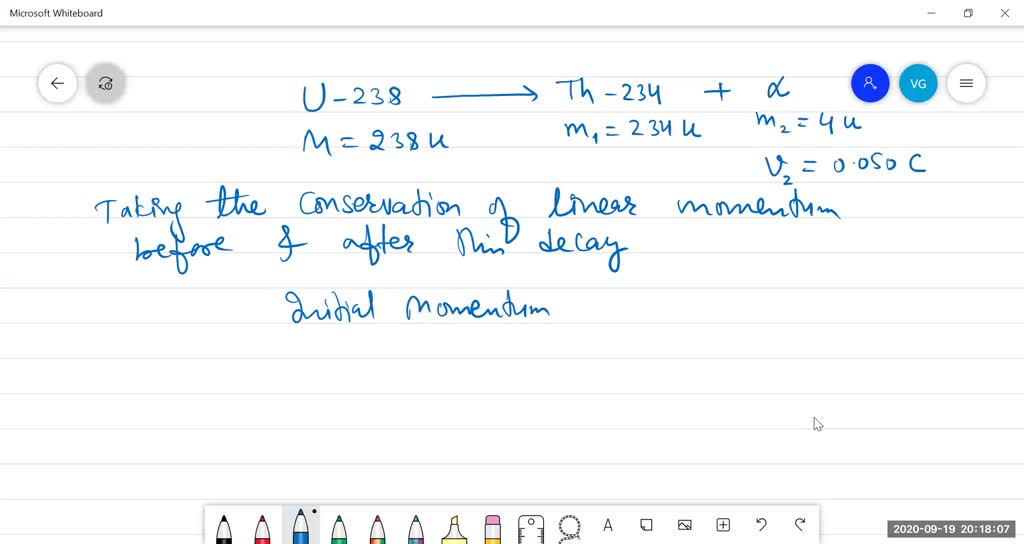 Microsoft Whiteboard
VG
U-238 ⟶ Th-234 + α
M = 238 u m₁ = 234 u m₂ = 4 u
v₂ = 0.050 C
Taking the conservation of linear momentum
before & after this decay
Initial momentum
A
2020-09-19 20:18:07